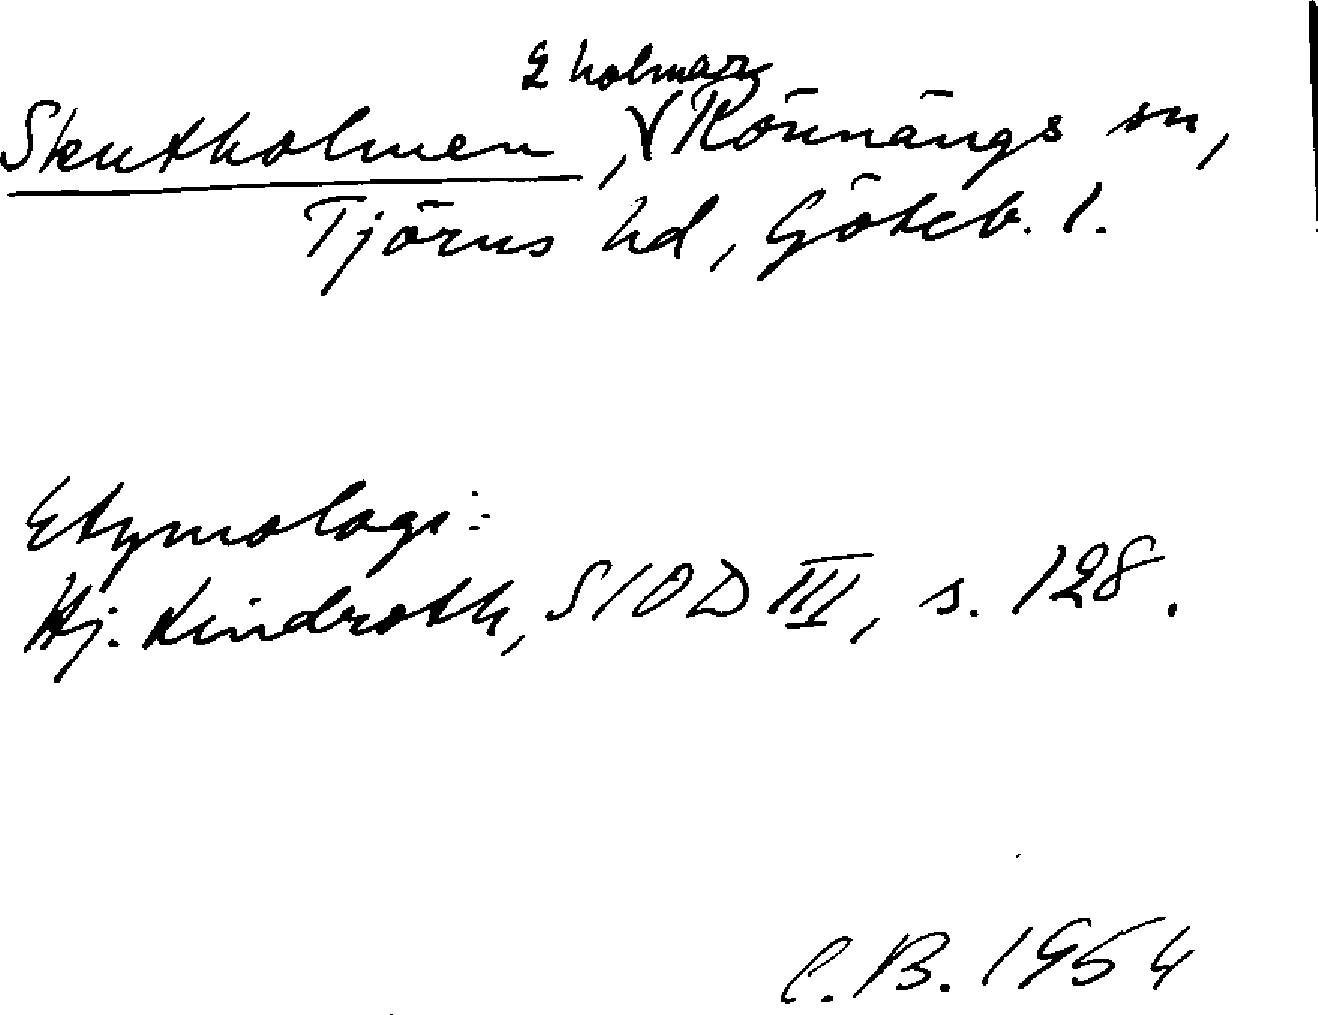 2 holmar
Skutholmen, Rönnängs sn,
Tjörns hd, Göteb. l.
Etymologi:
Hj. Lindroth, SIOD III, s. 128.
C.B. 1954